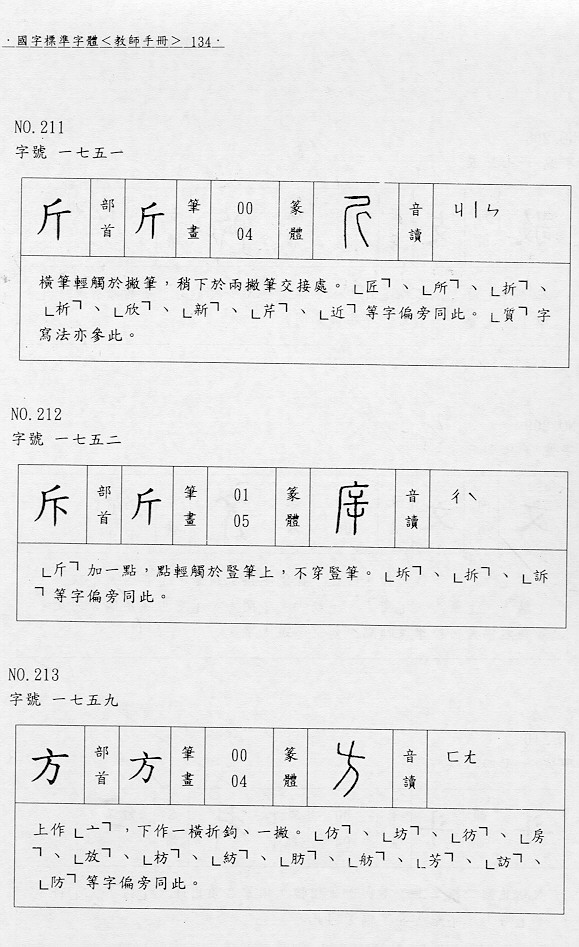 ·國字標準字體＜教師手冊＞ 134·
NO.211
字號 一七五一
斤 部首 斤 筆畫 00 04 篆體 音讀 ㄐㄧㄣ
橫筆輕觸於撇筆，稍下於兩撇筆交接處。「匠」、「所」、「折」、
「析」、「欣」、「新」、「芹」、「近」等字偏旁同此。「質」字
寫法亦參此。
NO.212
字號 一七五二
斥 部首 斤 筆畫 01 05 篆體 音讀 ㄔˋ
「斤」加一點，點輕觸於豎筆上，不穿豎筆。「坼」、「拆」、「訴
」等字偏旁同此。
NO.213
字號 一七五九
方 部首 方 筆畫 00 04 篆體 音讀 ㄈㄤ
上作「亠」，下作一橫折鉤、一撇。「仿」、「坊」、「彷」、「房
」、「放」、「枋」、「紡」、「肪」、「舫」、「芳」、「訪」、
「防」等字偏旁同此。